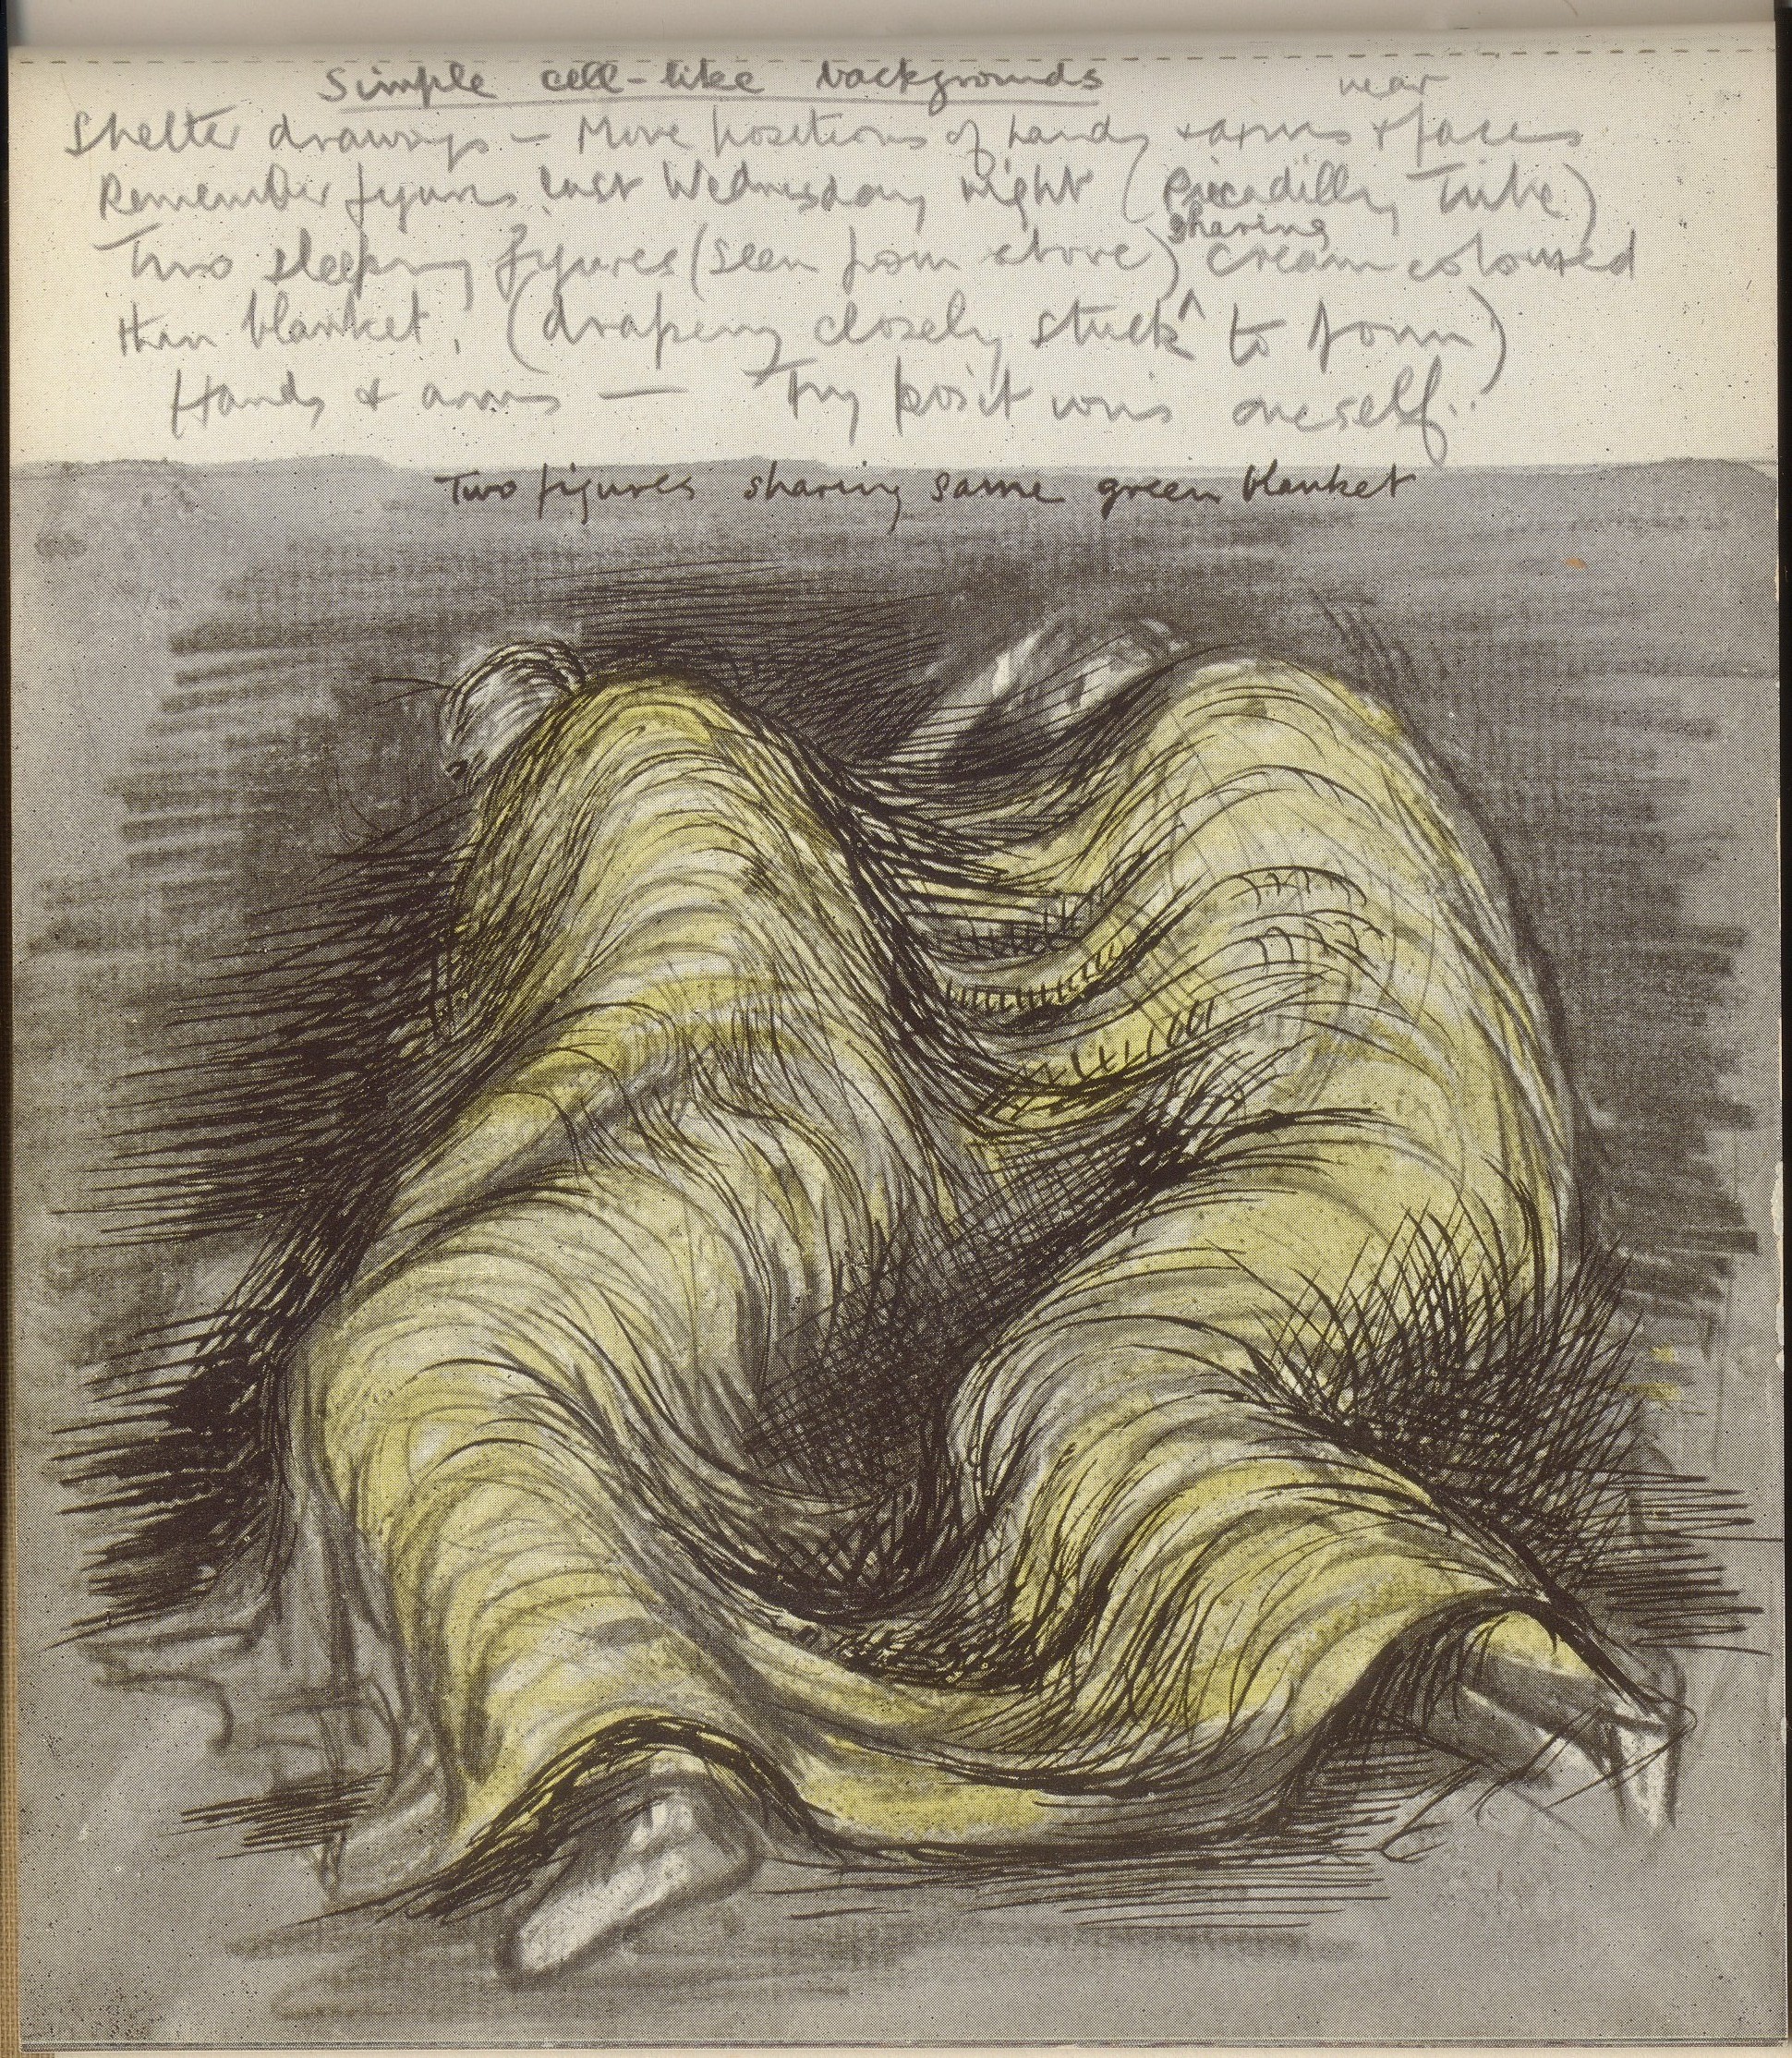 Simple cell-like backgrounds
near
Shelter drawings – More positions of hands & arms & faces
Remember figures last Wednesday night (Piccadilly Tube)
sharing
Two sleeping figures (seen from above) cream coloured
thin blanket. (drapery closely stuck ^ to form)
Hands & arms — Try positions oneself.
Two figures sharing same green blanket